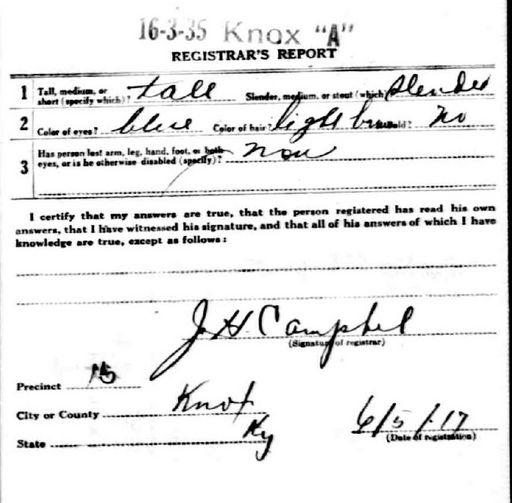 16-3-35 Knox "A"
REGISTRAR'S REPORT
1 Tall, medium, or short (specify which)? tall Slender, medium, or stout (which)? Slender
2 Color of eyes? blue Color of hair? light Bald? no
3 Has person lost arm, leg, hand, foot, or both eyes, or is he otherwise disabled (specify)?
I certify that my answers are true, that the person registered has read his own
answers, that I have witnessed his signature, and that all of his answers of which I have
knowledge are true, except as follows:
J H Campbel
(Signature of registrar)
Precinct 15
City or County Knox
State Ky 6/5/17
(Date of registration)